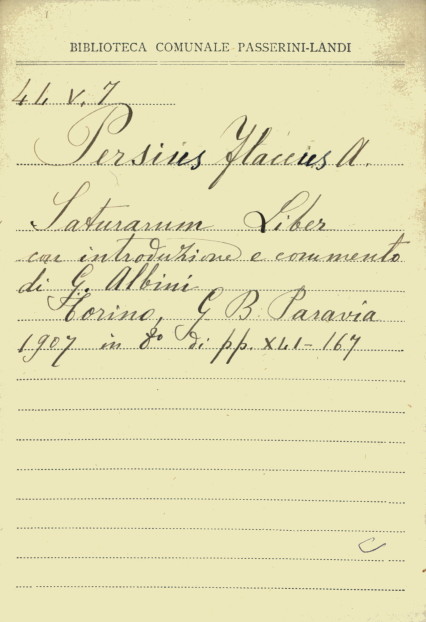 BIBLIOTECA COMUNALE PASSERINI-LANDI
4L V. 7
Persius Flaccus A.
Saturarum Liber
con introduzione e commento
di G. Albini
Torino, G B. Paravia
1907 in 8° di pp. XLI-167